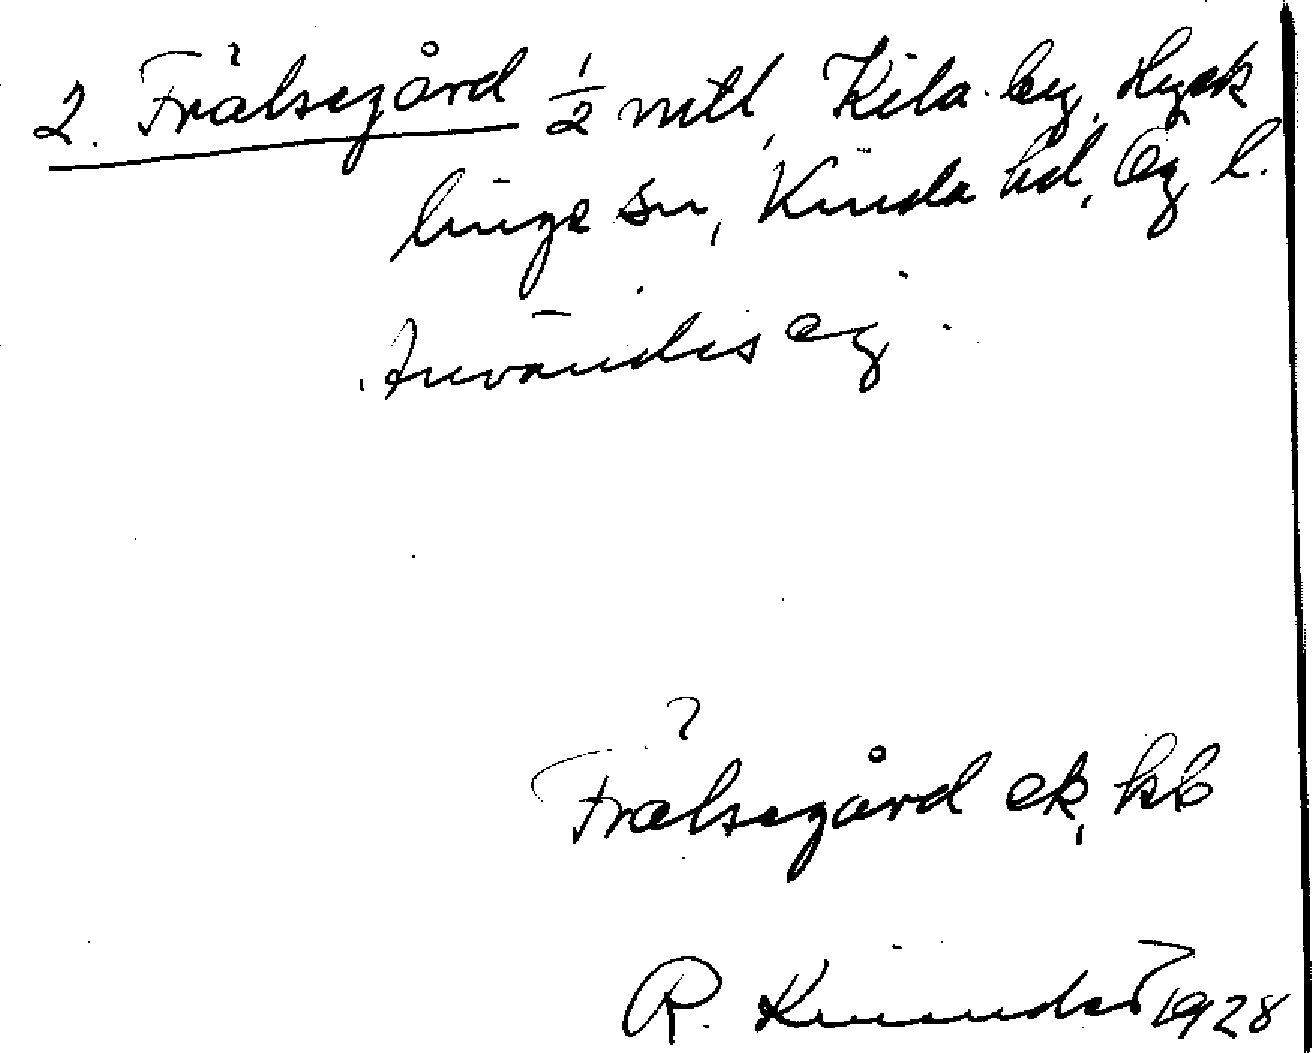 2. Frälsegård 1/2 mtl, Kila by, Hyck
linge sn, Kinda hd, Ög l.
Användes ej.
?
Frälsegård ek, kb
R. 1928